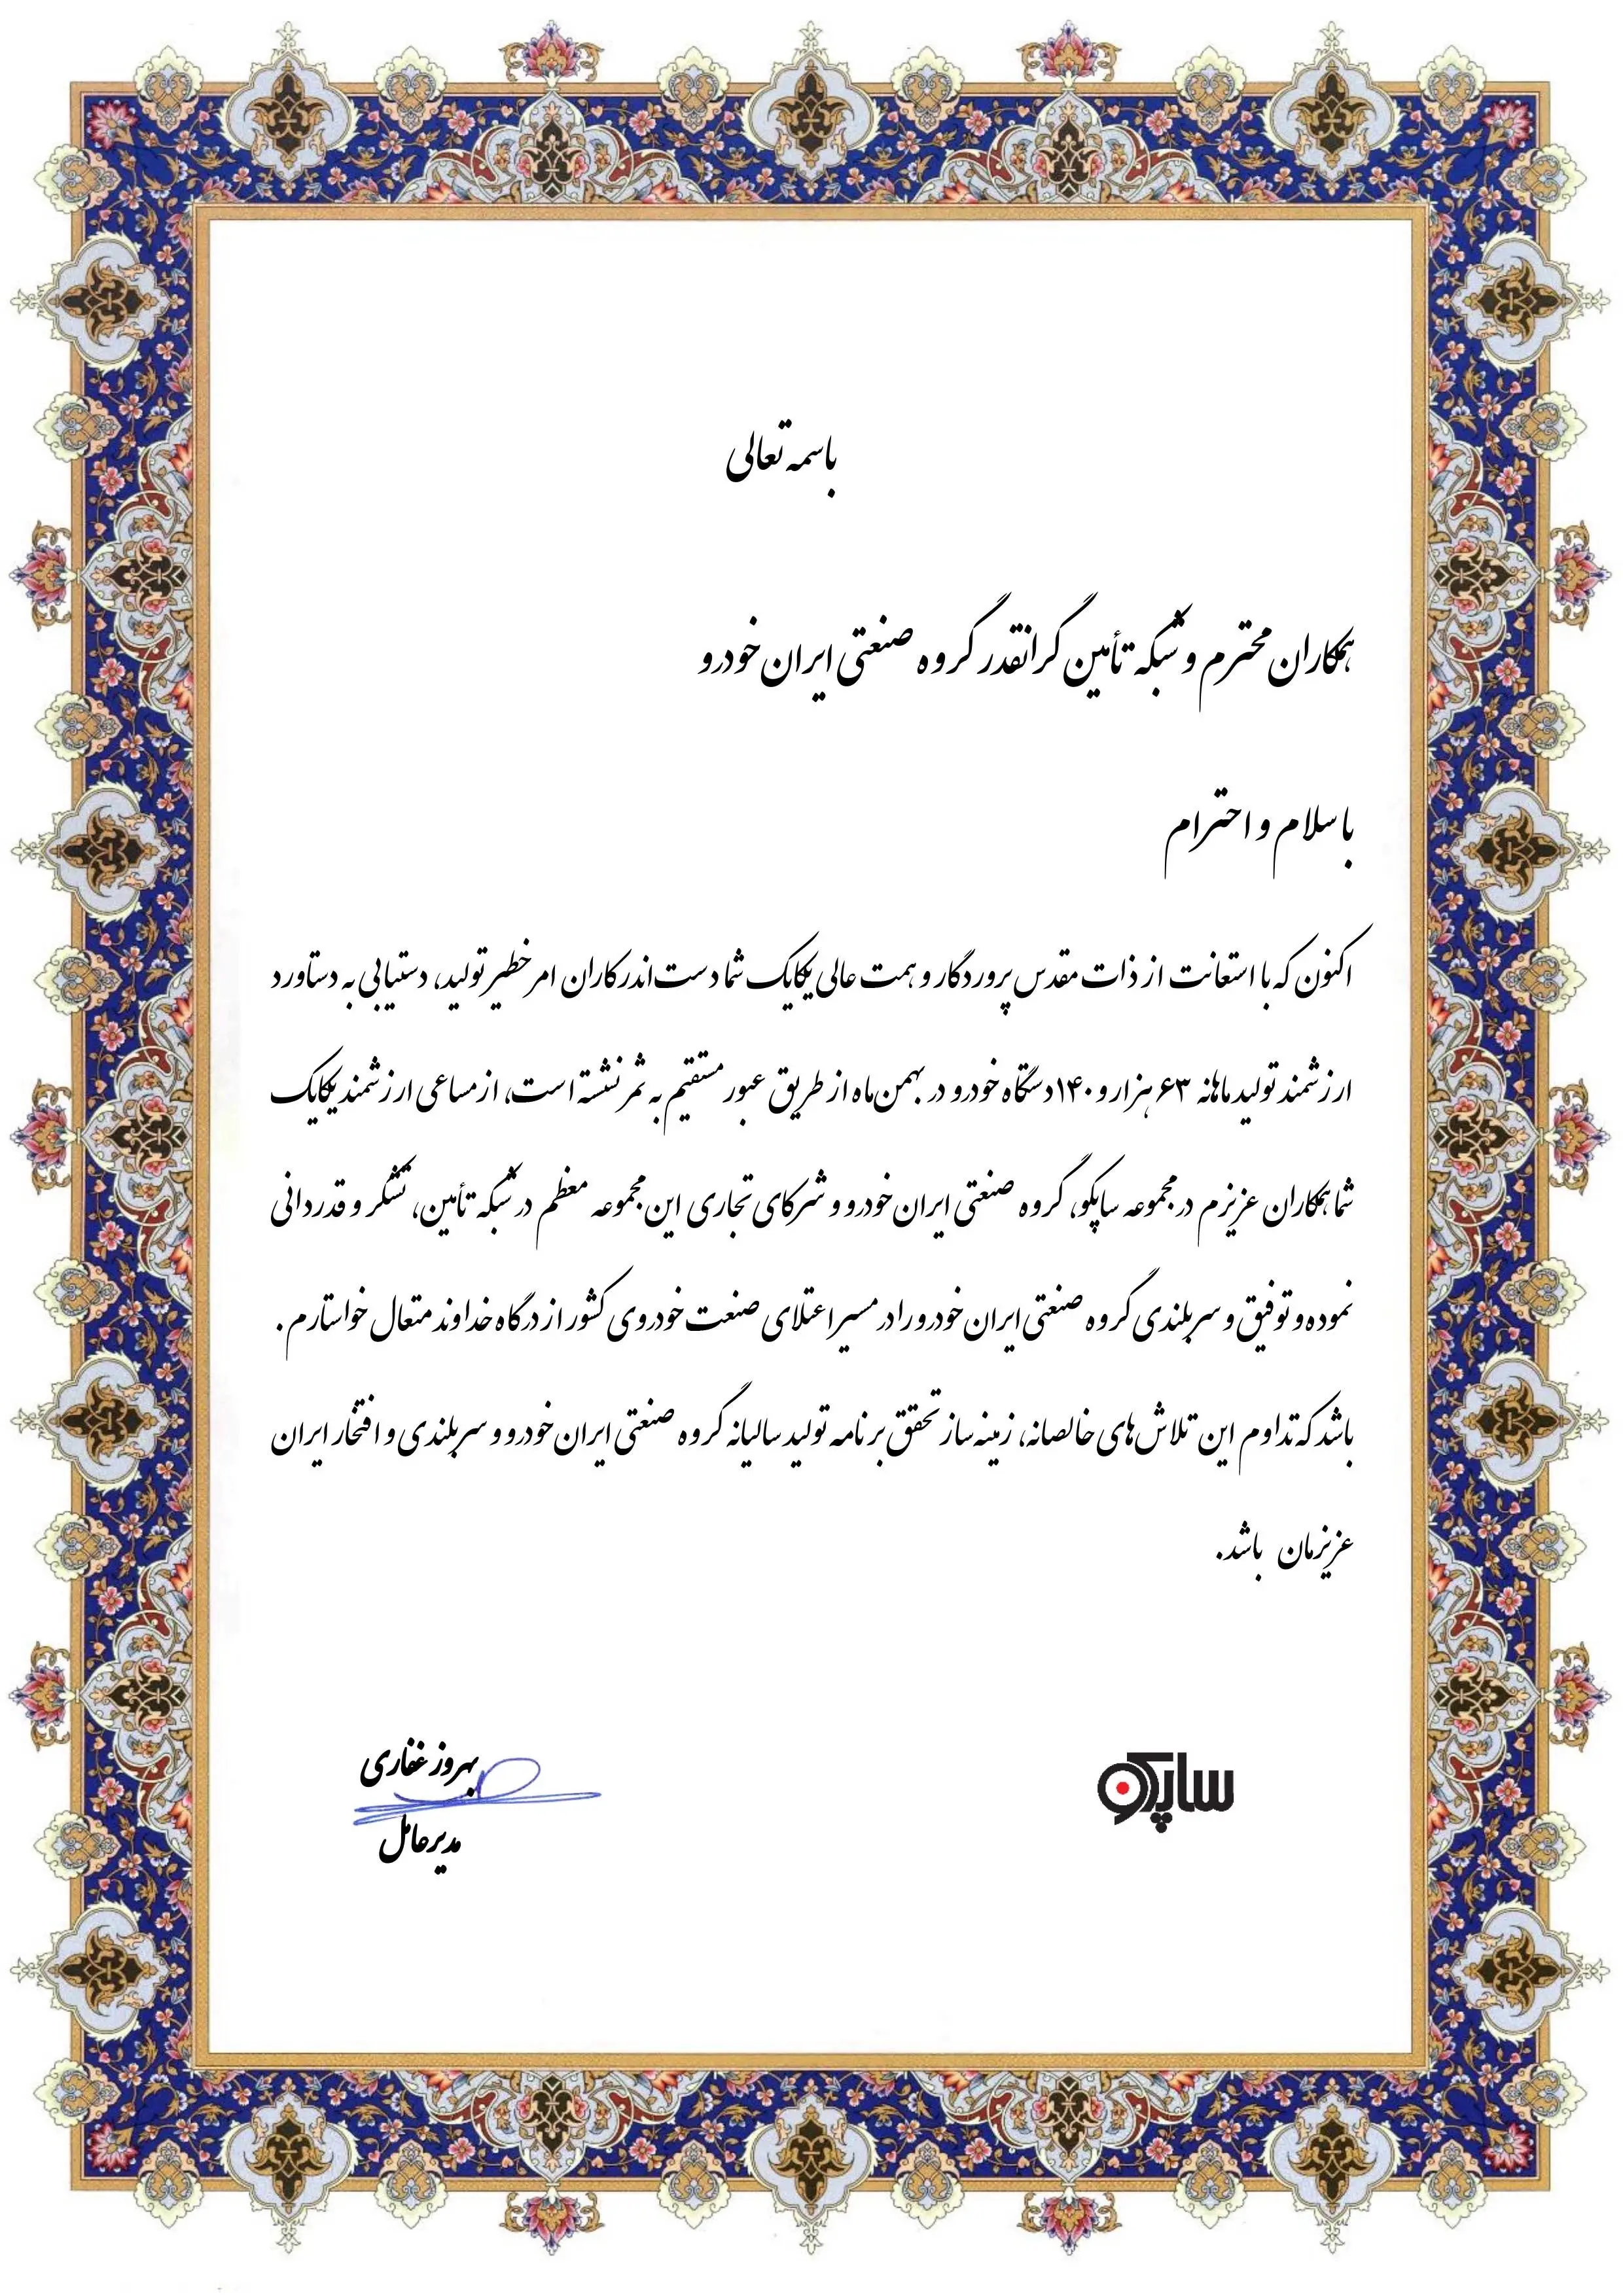 باسمه تعالی
همکاران محترم و شبکه تأمین گرانقدر گروه صنعتی ایران خودرو
با سلام و احترام
اکنون که با استعانت از ذات مقدس پروردگار و همت عالی یکایک شما دست‌اندرکاران امر خطیر تولید، دستیابی به دستاورد
ارزشمند تولید ماهانه ۶۳ هزار و ۱۴۰ دستگاه خودرو در بهمن‌ماه از طریق عبور مستقیم به ثمر نشسته است، از مساعی ارزشمند یکایک
شما همکاران عزیزم در مجموعه ساپکو، گروه صنعتی ایران خودرو و شرکای تجاری این مجموعه معظم در شبکه تأمین، تشکر و قدردانی
نموده و توفیق و سربلندی گروه صنعتی ایران خودرو را در مسیر اعتلای صنعت خودروی کشور از درگاه خداوند متعال خواستارم.
باشد که تداوم این تلاش‌های خالصانه، زمینه‌ساز تحقق برنامه تولید سالیانه گروه صنعتی ایران خودرو و سربلندی و افتخار ایران
عزیزمان باشد.
ساپکو
بهروز غفاری
مدیرعامل